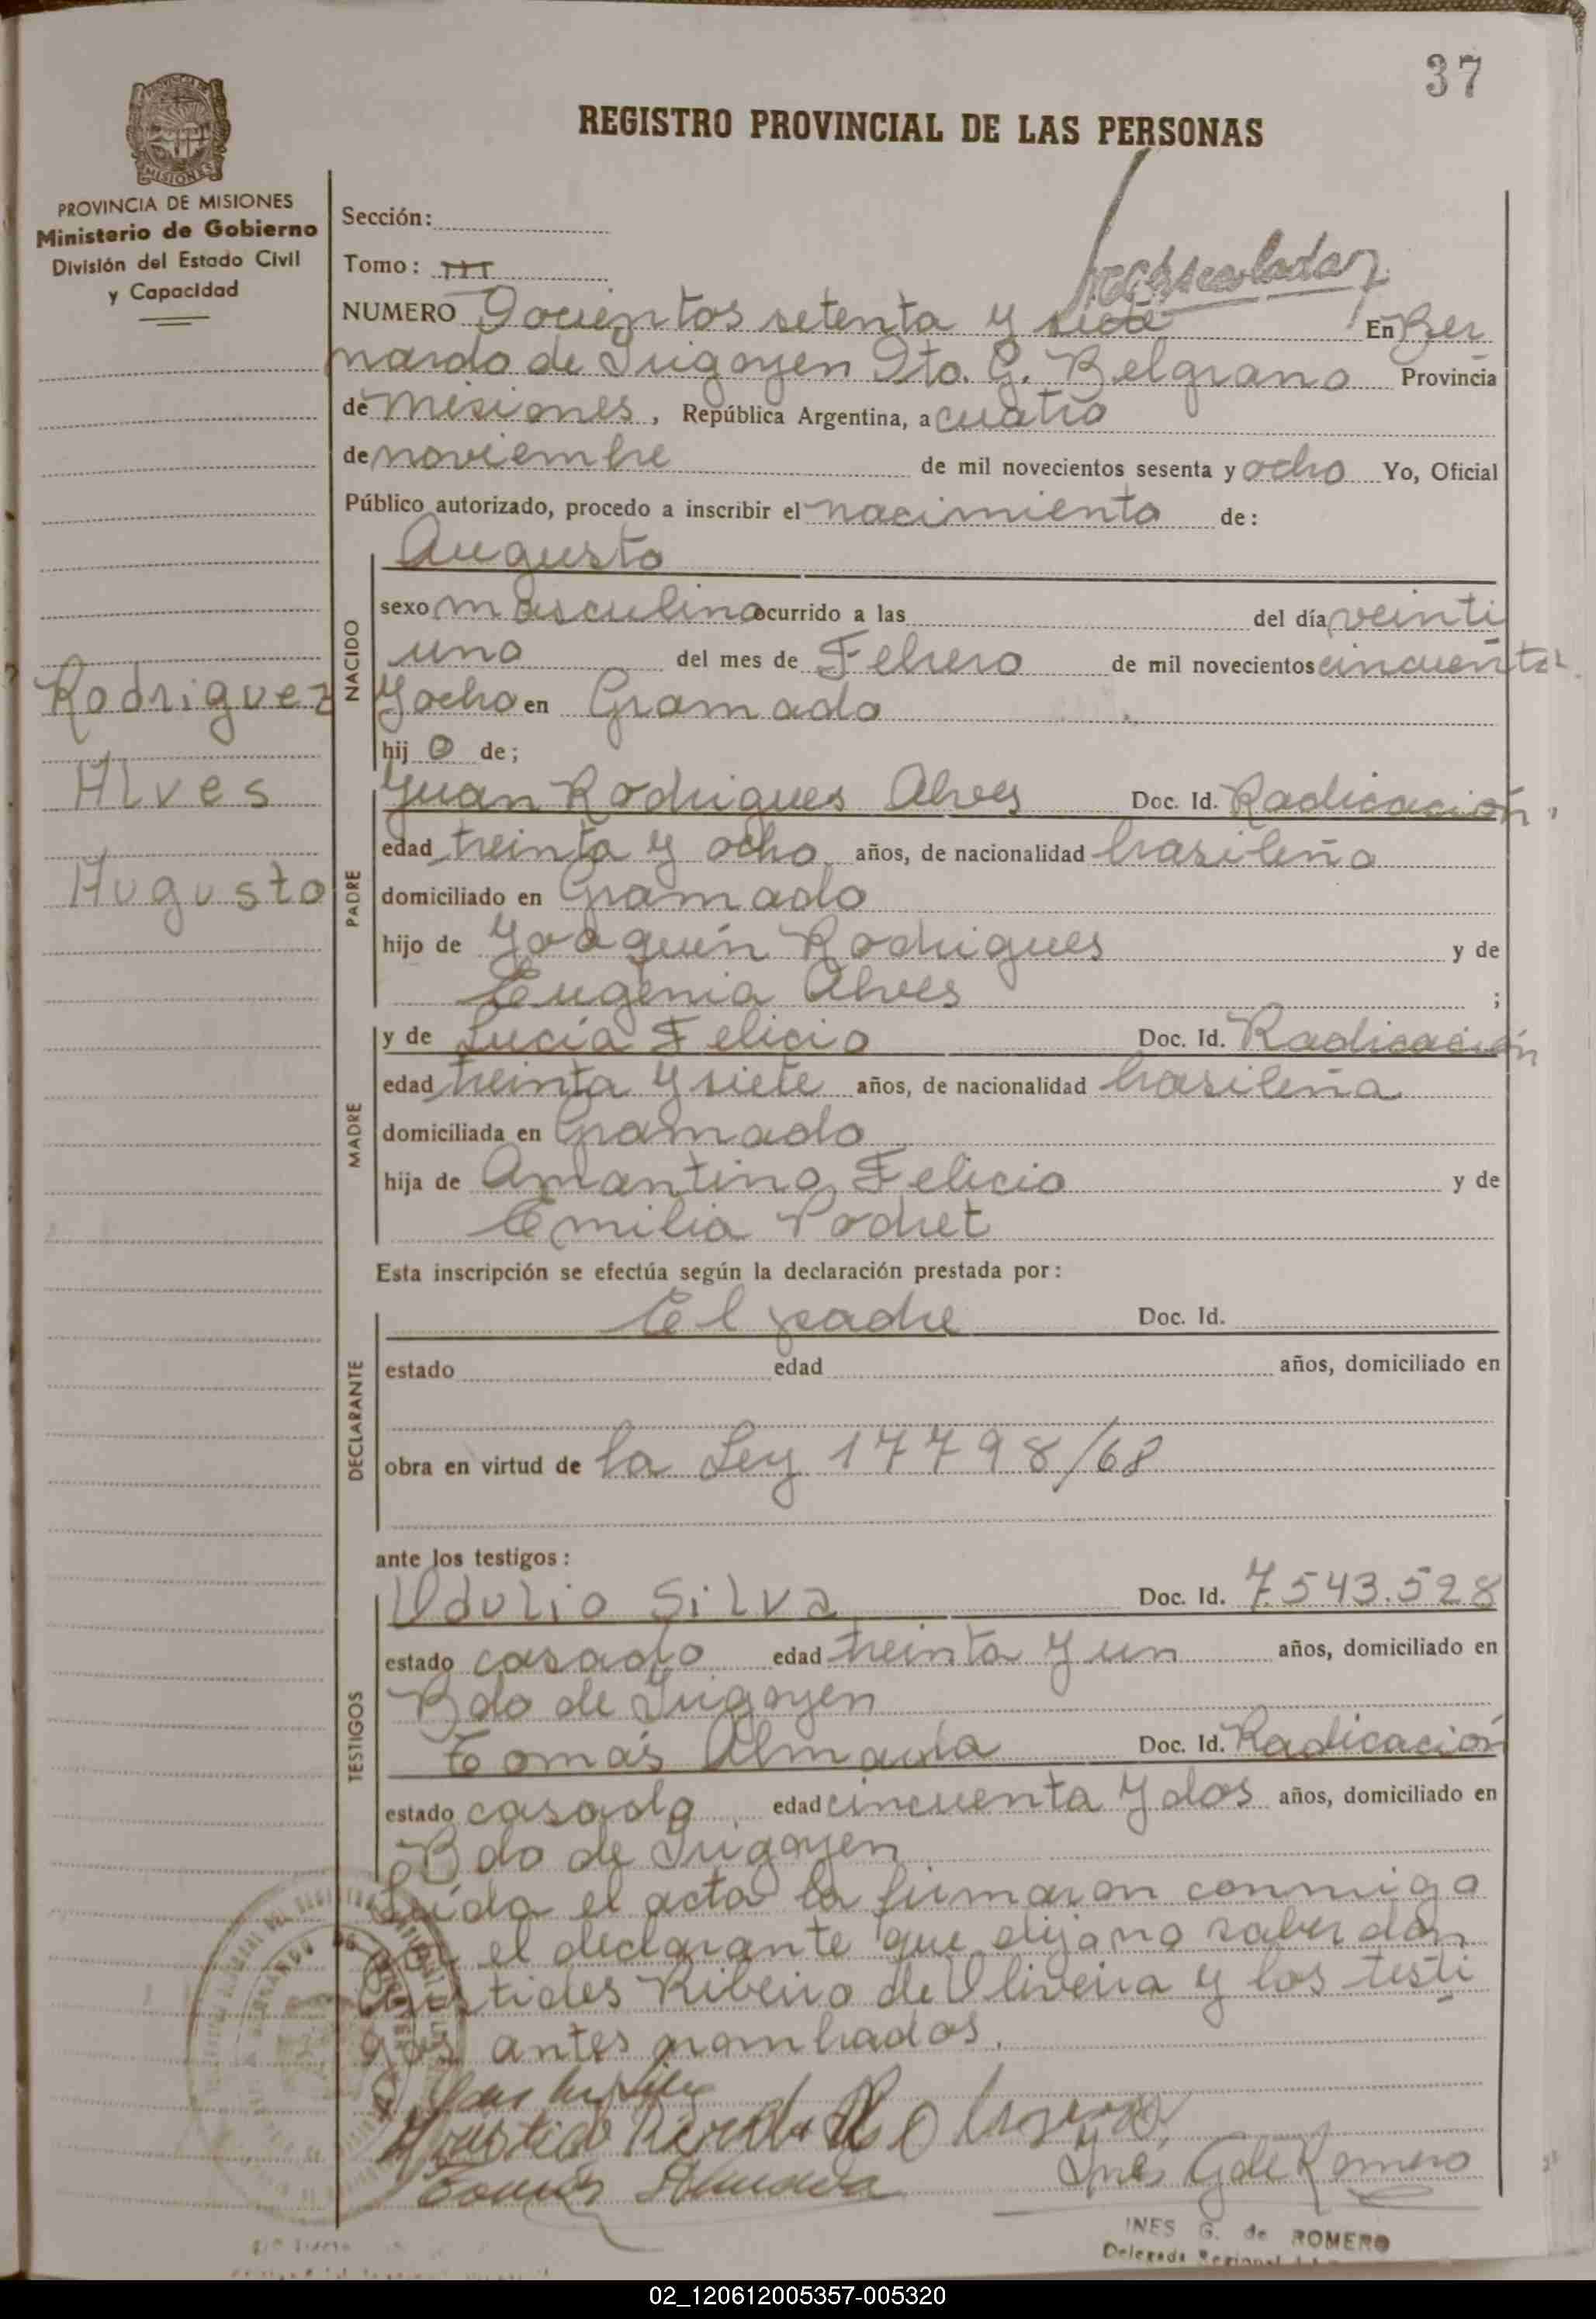 37
REGISTRO PROVINCIAL DE LAS PERSONAS
MISIONES
PROVINCIA DE MISIONES
Ministerio de Gobierno
División del Estado Civil
y Capacidad
Rodriguez
Alves
Augusto
Sección:
Tomo: III
NUMERO Docientos setenta y siete En Ber
nardo de Irigoyen Dto. G. Belgrano Provincia
de Misiones, República Argentina, a cuatro
de noviembre de mil novecientos sesenta y ocho Yo, Oficial
Público autorizado, procedo a inscribir el nacimiento de:
Augusto
NACIDO
sexo masculino ocurrido a las del día veinti
uno del mes de Febrero de mil novecientos cincuenta
y ocho en Gramado
hij o de;
PADRE
Juan Rodrigues Alves Doc. Id. Radicación
edad treinta y ocho años, de nacionalidad brasileña
domiciliado en Gramado
hijo de Joaquín Rodrigues y de
Eugenia Alves ;
MADRE
y de Lucía Felicio Doc. Id. Radicación
edad treinta y siete años, de nacionalidad brasileña
domiciliada en Gramado
hija de Amantino Felicio y de
Emilia
Esta inscripción se efectúa según la declaración prestada por:
DECLARANTE
El padre Doc. Id.
estado edad años, domiciliado en
obra en virtud de la Ley 17798/68
ante los testigos:
TESTIGOS
Odulio Silva Doc. Id. 7.543.528
estado casado edad treinta y un años, domiciliado en
Bdo de Irigoyen
Tomás Almada Doc. Id. Radicación
estado casado edad cincuenta y dos años, domiciliado en
Bdo de Irigoyen
Leída el acta la firmaron conmigo
por el declarante que dijo no saber don
Ribeiro de Oliveira y los testi
gos antes nombrados.
Tomás Almada
Ines G de Romero
INES G. de ROMERO
Delegada Regional
02_120612005357-005320